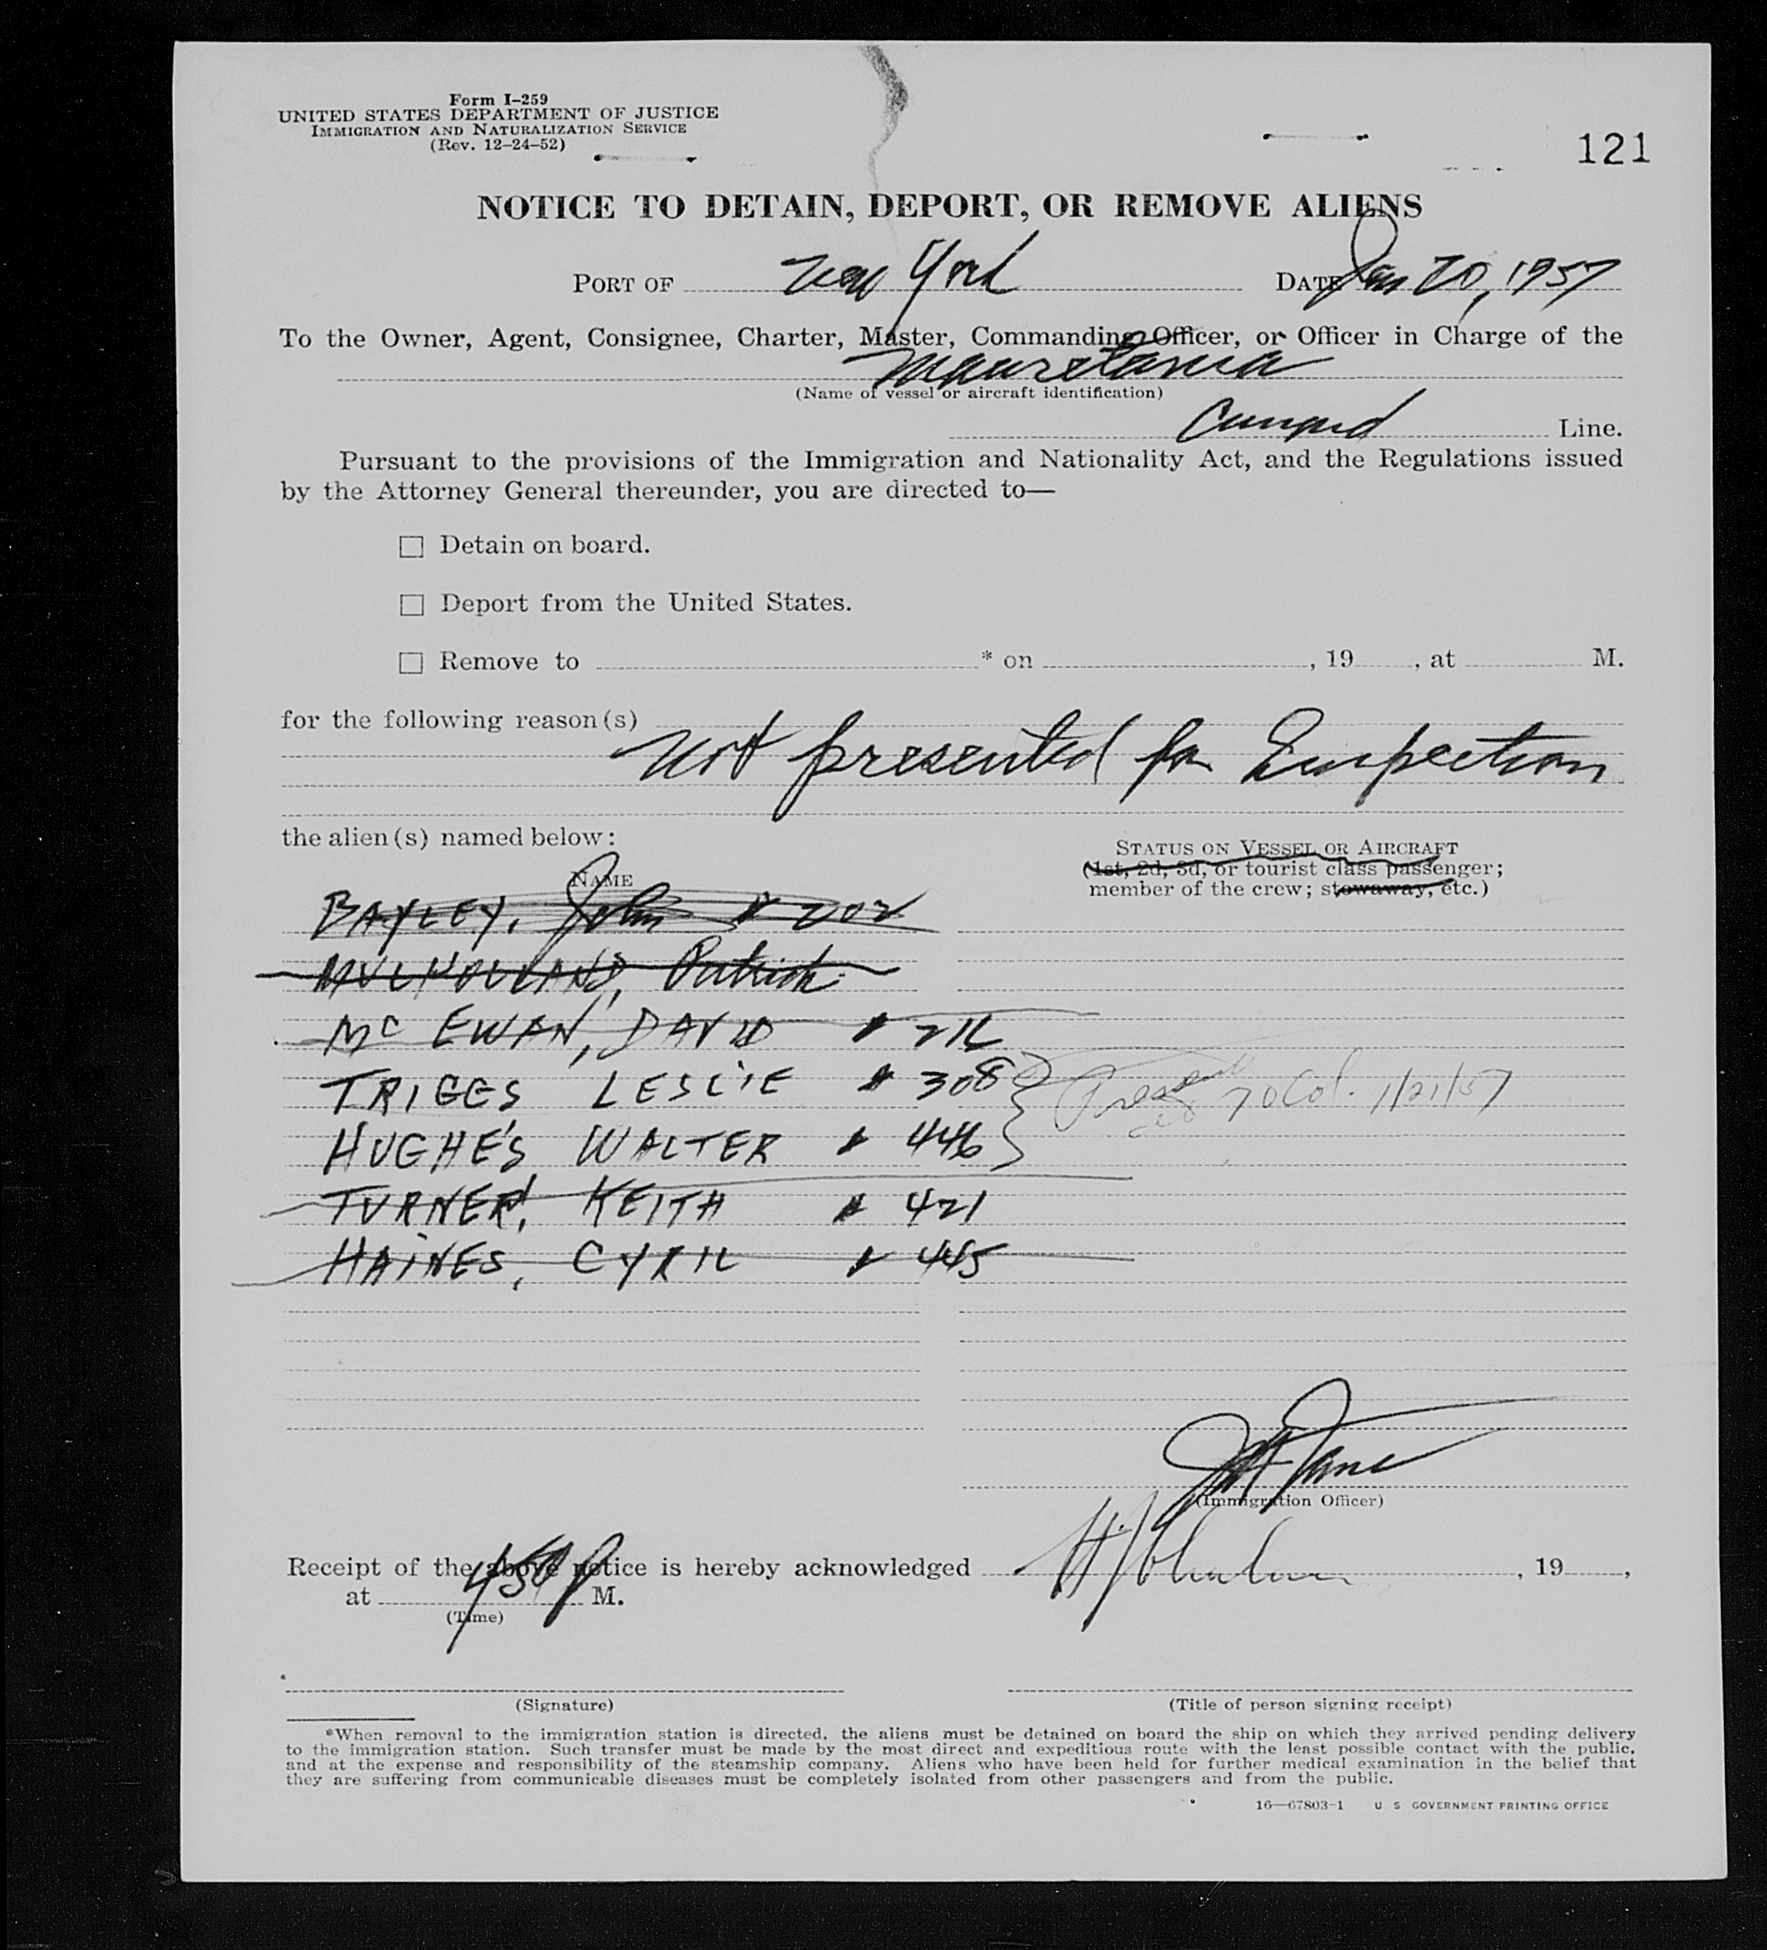 Form I-259
UNITED STATES DEPARTMENT OF JUSTICE
IMMIGRATION AND NATURALIZATION SERVICE
(Rev. 12-24-52)
121
NOTICE TO DETAIN, DEPORT, OR REMOVE ALIENS
PORT OF New York DATE Jan 20, 1957
To the Owner, Agent, Consignee, Charter, Master, Commanding Officer, or Officer in Charge of the
Mauretania
(Name of vessel or aircraft identification)
Cunard Line.
Pursuant to the provisions of the Immigration and Nationality Act, and the Regulations issued
by the Attorney General thereunder, you are directed to—
☐ Detain on board.
☐ Deport from the United States.
☐ Remove to * on , 19 , at M.
for the following reason(s)
Not presented for Inspection
the alien(s) named below:
STATUS ON VESSEL OR AIRCRAFT
(1st, 2d, 3d, or tourist class passenger;
member of the crew; stowaway, etc.)
NAME
BAYLEY, John # 202
MULHOLLAND, Patrick
Mc EWAN, DAVID #
TRIGGS LESLIE # 308
70 Col. 1/21/57
HUGHES WALTER # 446
TURNER, KEITH # 421
HAINES, CYRIL # 445
(Immigration Officer)
Receipt of the above notice is hereby acknowledged , 19 ,
at 450 P M.
(Time)
(Signature)
(Title of person signing receipt)
*When removal to the immigration station is directed, the aliens must be detained on board the ship on which they arrived pending delivery
to the immigration station. Such transfer must be made by the most direct and expeditious route with the least possible contact with the public,
and at the expense and responsibility of the steamship company. Aliens who have been held for further medical examination in the belief that
they are suffering from communicable diseases must be completely isolated from other passengers and from the public.
16—67803-1 U S GOVERNMENT PRINTING OFFICE